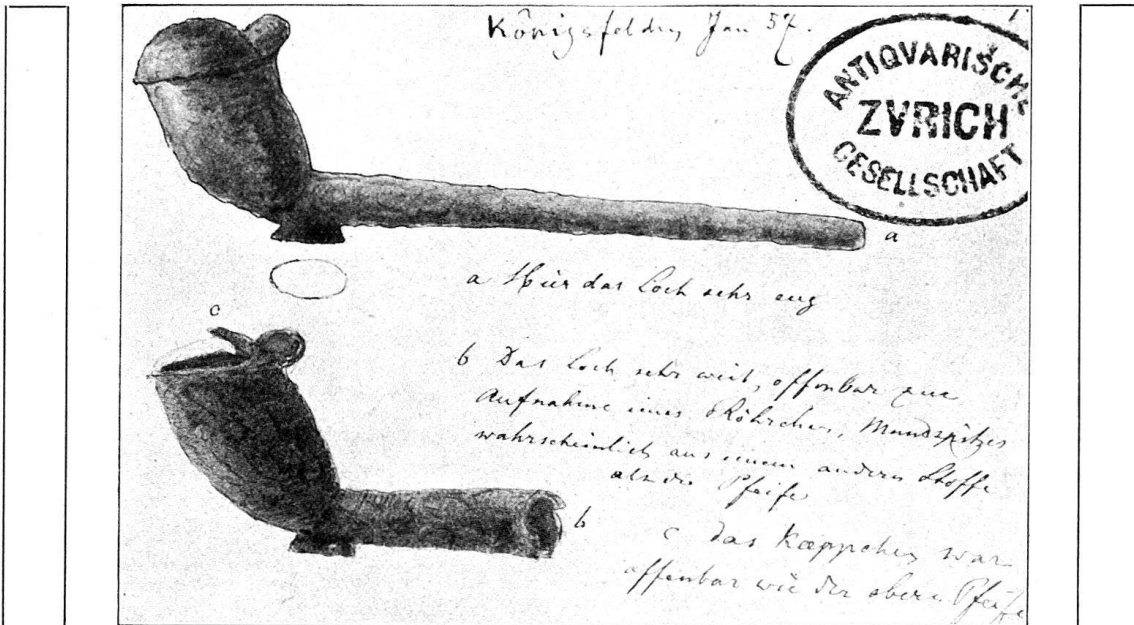 Königsfelden Jan 57.
1
ANTIQVARISCHE
ZVRICH
GESELLSCHAFT
a
a Hier das Loch sehr eng
c
b Das Loch sehr weit, offenbar zur
Aufnahme eines Röhrchen, Mundspitzes
wahrscheinlich aus einem andern Stoffe
als die Pfeife
b
c das Kæppchen war
offenbar wie der obern Pfeife